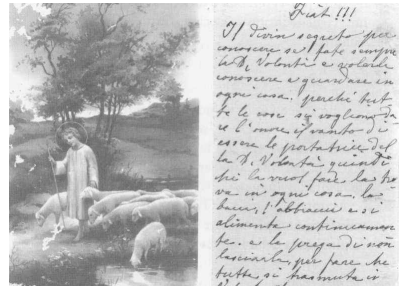 Fiat!!!
Il divin segreto per
conoscere se fate sempre
la D. Volontà e volerla
conoscere e guardare in
ogni cosa. perchè tut
te le cose si vogliono da
re l'onore il vanto di
essere le portatrice del
la D. Volontà quindi
chi la vuol fare la tro
va in ogni cosa. la
bacia, l'abbraccia e si
alimenta continuamen
te. e la prega di non
lasciarla, per fare che
tutto si trasmuta in